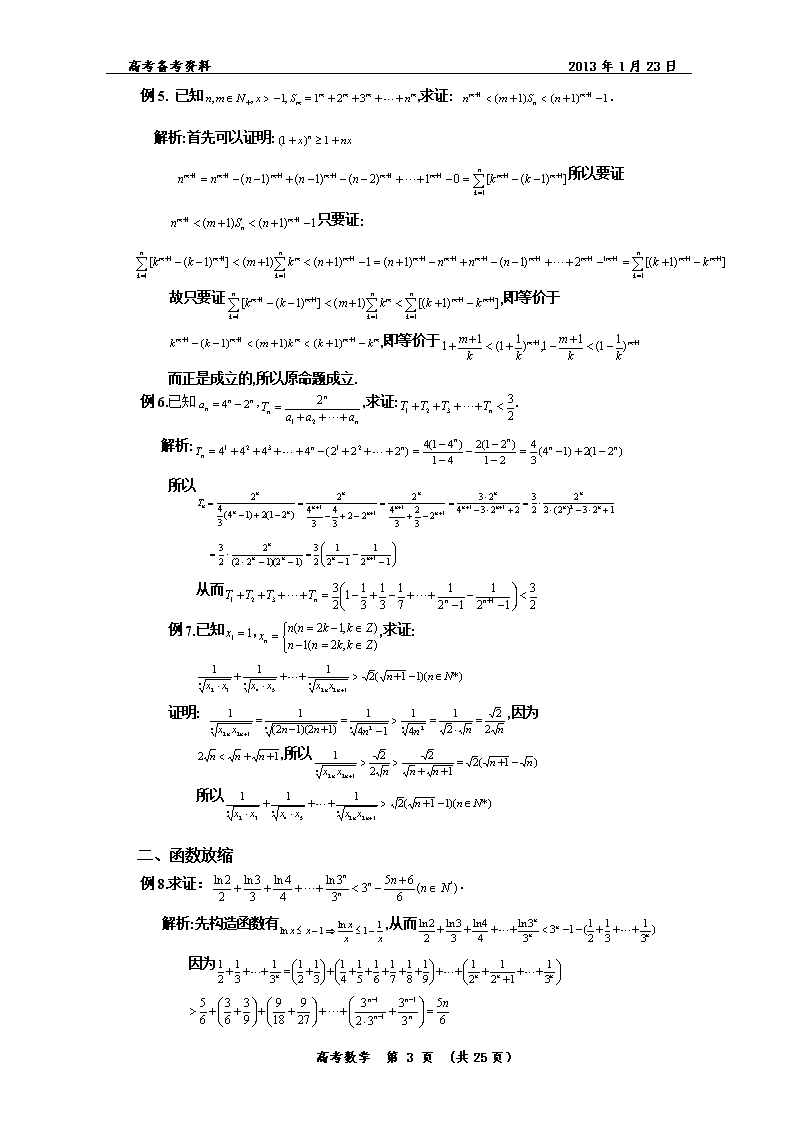 高考备考资料 2013 年 1 月 23 日
例 5. 已知 n,m∈N₊, x>−1, Sₘ=1ᵐ+2ᵐ+3ᵐ+⋯+nᵐ,求证: nᵐ⁺¹<(m+1)Sₙ<(n+1)ᵐ⁺¹−1.
解析:首先可以证明: (1+x)ⁿ≥1+nx
nᵐ⁺¹=nᵐ⁺¹−(n−1)ᵐ⁺¹+(n−1)ᵐ⁺¹−(n−2)ᵐ⁺¹+⋯+1ᵐ⁺¹−0=∑_{i=1}^{n}[kᵐ⁺¹−(k−1)ᵐ⁺¹]所以要证
nᵐ⁺¹<(m+1)Sₙ<(n+1)ᵐ⁺¹−1只要证:
∑_{i=1}^{n}[kᵐ⁺¹−(k−1)ᵐ⁺¹]<(m+1)∑_{i=1}^{n}kᵐ<(n+1)ᵐ⁺¹−1=(n+1)ᵐ⁺¹−nᵐ⁺¹+nᵐ⁺¹−(n−1)ᵐ⁺¹+⋯+2ᵐ⁺¹−1ᵐ⁺¹=∑_{i=1}^{n}[(k+1)ᵐ⁺¹−kᵐ⁺¹]
故只要证∑_{i=1}^{n}[kᵐ⁺¹−(k−1)ᵐ⁺¹]<(m+1)∑_{i=1}^{n}kᵐ<∑_{i=1}^{n}[(k+1)ᵐ⁺¹−kᵐ⁺¹],即等价于
kᵐ⁺¹−(k−1)ᵐ⁺¹<(m+1)kᵐ<(k+1)ᵐ⁺¹−kᵐ,即等价于1+(m+1)/k<(1+1/k)ᵐ⁺¹,1−(m+1)/k<(1−1/k)ᵐ⁺¹
而正是成立的,所以原命题成立.
例 6.已知 aₙ=4ⁿ−2ⁿ, Tₙ=2ⁿ/(a₁+a₂+⋯+aₙ),求证:T₁+T₂+T₃+⋯+Tₙ<3/2.
解析:Tₙ=4¹+4²+4³+⋯+4ⁿ−(2¹+2²+⋯+2ⁿ)=4(1−4ⁿ)/(1−4)−2(1−2ⁿ)/(1−2)=4/3(4ⁿ−1)+2(1−2ⁿ)
所以Tₙ=2ⁿ/(4/3(4ⁿ−1)+2(1−2ⁿ))=2ⁿ/(4ⁿ⁺¹/3−4/3+2−2ⁿ⁺¹)=2ⁿ/(4ⁿ⁺¹/3+2/3−2ⁿ⁺¹)=3·2ⁿ/(4ⁿ⁺¹−3·2ⁿ⁺¹+2)=3/2·2ⁿ/(2·(2ⁿ)²−3·2ⁿ+1)
=3/2·2ⁿ/((2·2ⁿ−1)(2ⁿ−1))=3/2(1/(2ⁿ−1)−1/(2ⁿ⁺¹−1))
从而T₁+T₂+T₃+⋯+Tₙ=3/2(1−1/3+1/3−1/7+⋯+1/(2ⁿ−1)−1/(2ⁿ⁺¹−1))<3/2
例 7.已知x₁=1, xₙ={n(n=2k−1,k∈Z) n−1(n=2k,k∈Z),求证:
证明:
,因为
2√n<√n+√n+1,所以
所以
二、函数放缩
例 8.求证: ln2/2+ln3/3+ln4/4+⋯+ln3ⁿ/3ⁿ<3ⁿ−(5n+6)/6(n∈N*).
解析:先构造函数有ln x≤x−1⇒ln x/x≤1−1/x,从而ln2/2+ln3/3+ln4/4+⋯+ln3ⁿ/3ⁿ<3ⁿ−1−(1/2+1/3+⋯+1/3ⁿ)
因为1/2+1/3+⋯+1/3ⁿ=(1/2+1/3)+(1/4+1/5+1/6+1/7+1/8+1/9)+⋯+(1/2ⁿ+1/(2ⁿ+1)+⋯+1/3ⁿ)
>5/6+(3/6+3/9)+(9/18+9/27)+⋯+(3ⁿ⁻¹/(2·3ⁿ⁻¹)+3ⁿ⁻¹/3ⁿ)=5n/6
高考数学 第 3 页 (共 25页)